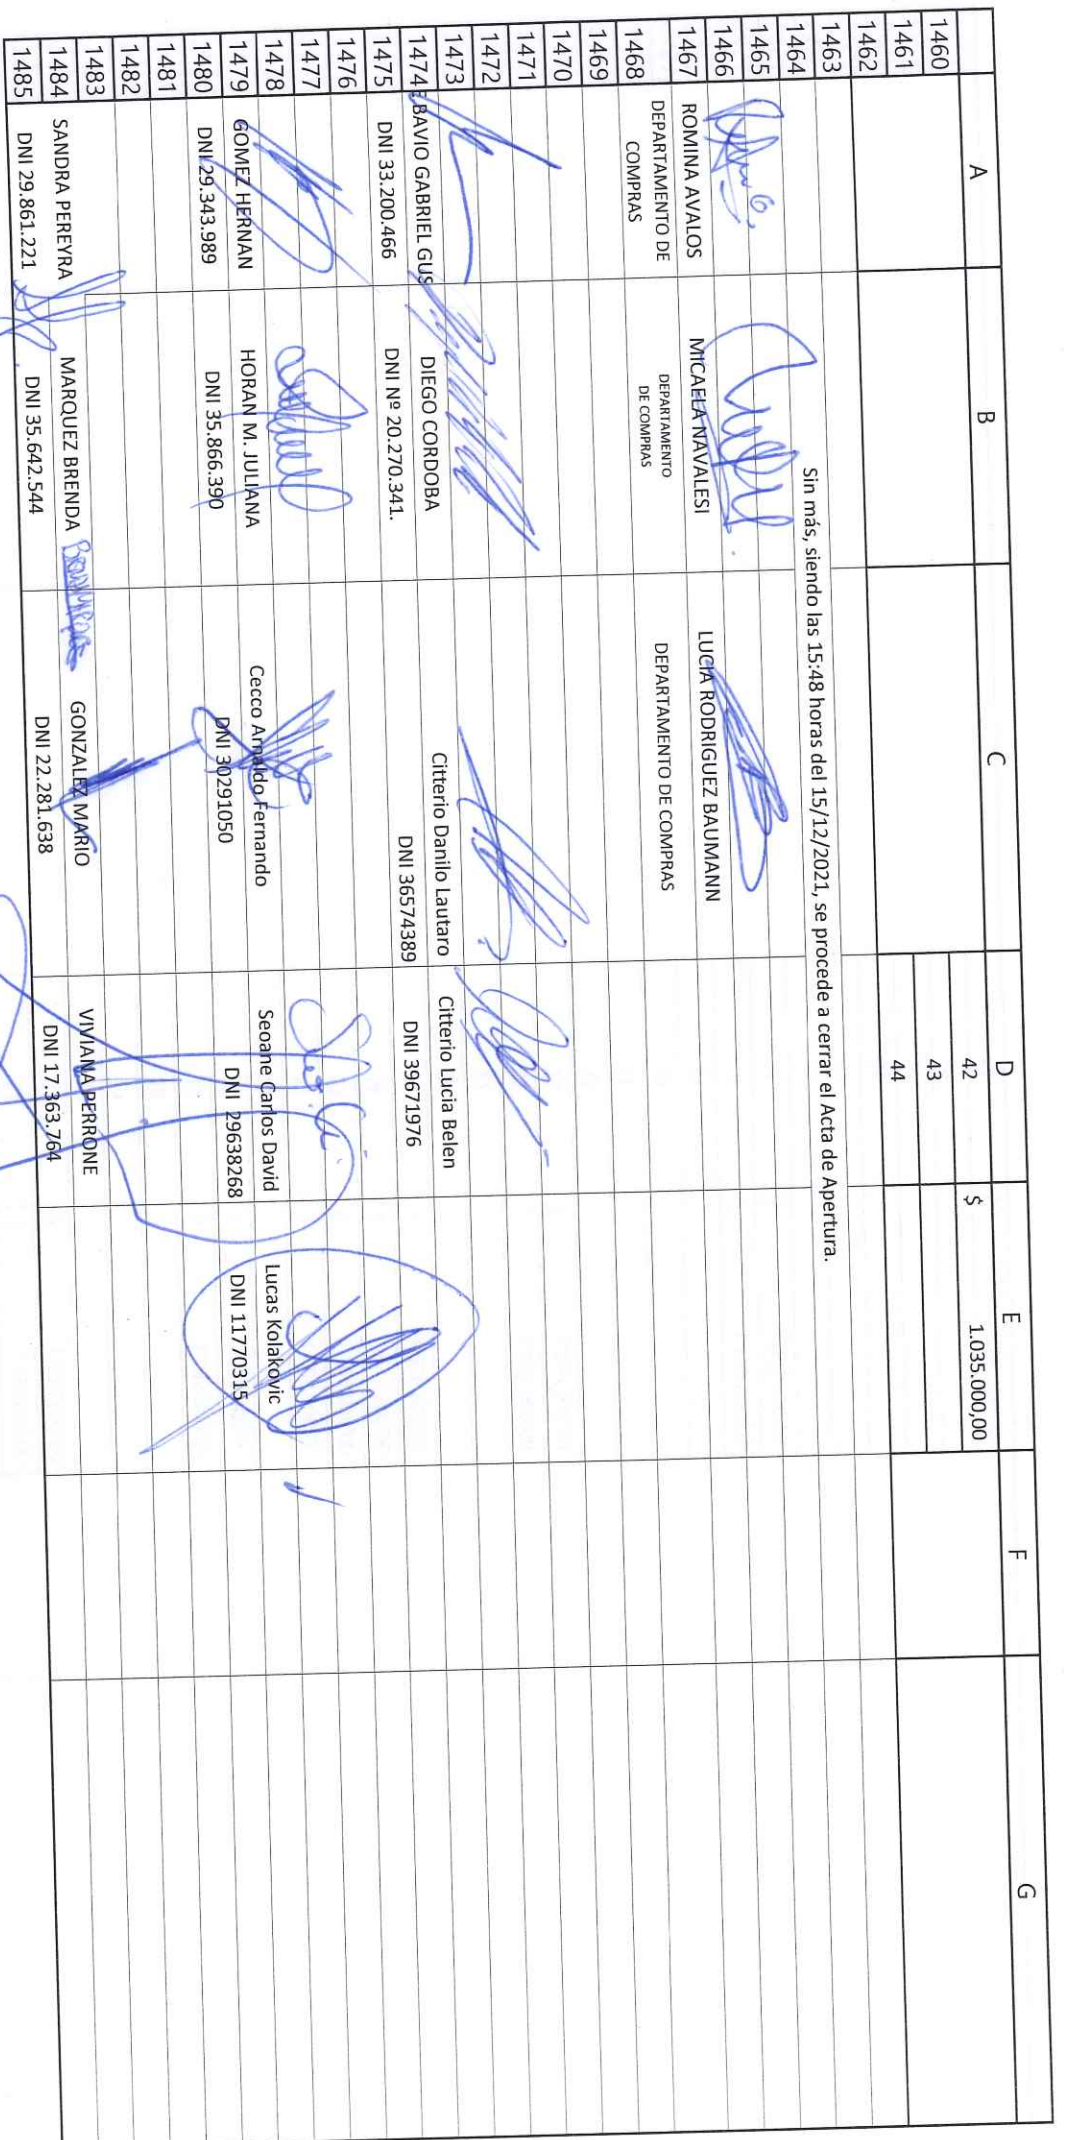 A B C D E F G
1460 42 $ 1.035.000,00
1461 43
1462 44
1463
1464 Sin más, siendo las 15:48 horas del 15/12/2021, se procede a cerrar el Acta de Apertura.
1465
1466
1467 ROMINA AVALOS MICAELA NAVALESI LUCIA RODRIGUEZ BAUMANN
1468 DEPARTAMENTO DE COMPRAS DEPARTAMENTO DE COMPRAS DEPARTAMENTO DE COMPRAS
1469
1470
1471
1472
1473
1474 BAVIO GABRIEL GUS DIEGO CORDOBA Citterio Danilo Lautaro Citterio Lucia Belen
1475 DNI 33.200.466 DNI Nº 20.270.341. DNI 36574389 DNI 39671976
1476
1477
1478
1479 GOMEZ HERNAN HORAN M. JULIANA Cecco Arnaldo Fernando Seoane Carlos David Lucas Kolakovic
1480 DNI 29.343.989 DNI 35.866.390 DNI 30291050 DNI 29638268 DNI 11770315
1481
1482
1483
1484 SANDRA PEREYRA MARQUEZ BRENDA GONZALEZ MARIO VIVIANA PERRONE
1485 DNI 29.861.221 DNI 35.642.544 DNI 22.281.638 DNI 17.363.764